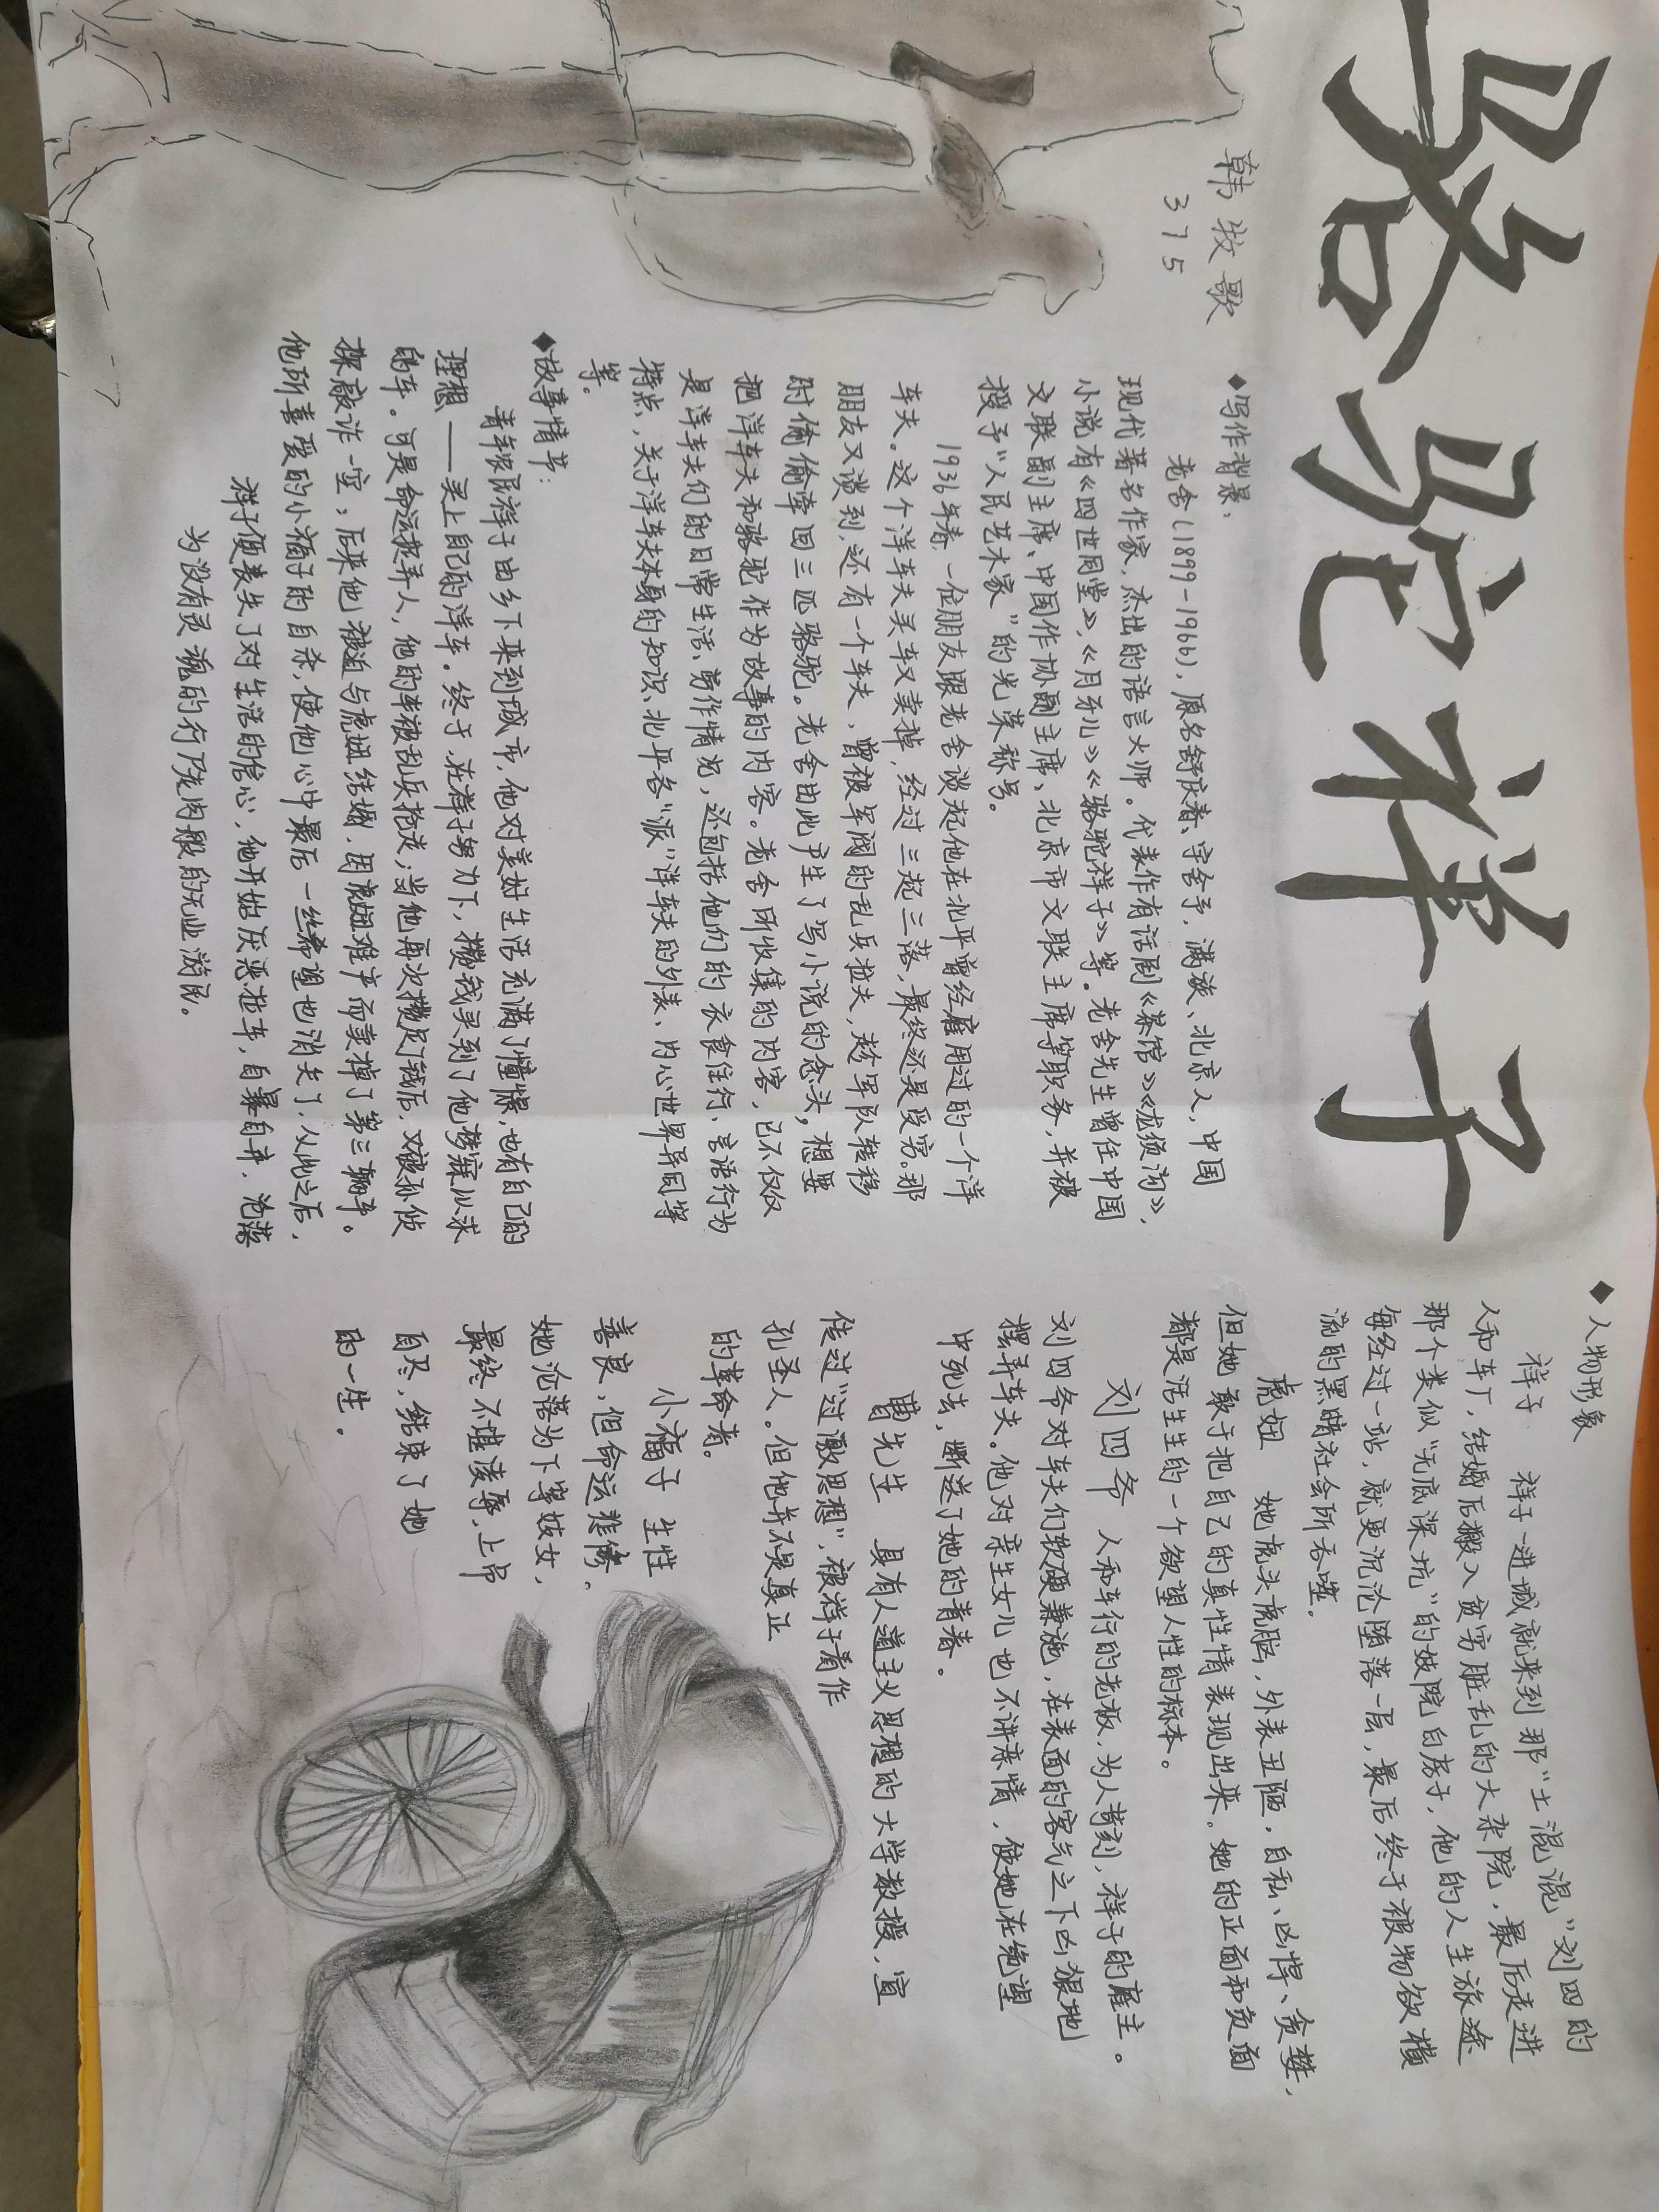 骆驼祥子
韩牧歌
375
◆写作背景:
老舍(1899-1966),原名舒庆春、字舍予,满族、北京人,中国
现代著名作家,杰出的语言大师。代表作有话剧《茶馆》《龙须沟》,
小说有《四世同堂》,《月牙儿》《骆驼祥子》等。老舍先生曾任中国
文联副主席、中国作协副主席、北京市文联主席等职务,并被
授予“人民艺术家”的光荣称号。
1936年春,一位朋友跟老舍谈起他在北平曾经雇用过的一个洋
车夫。这个洋车夫买车又卖掉,经过三起三落,最终还是受穷。那
朋友又谈到,还有一个车夫,曾被军阀的乱兵拉夫,趁军队转移
时偷偷牵回三匹骆驼。老舍由此产生了写小说的念头,想要
把洋车夫和骆驼作为故事的内容。老舍所收集的内容,已不仅仅
是洋车夫们的日常生活、劳作情况,还包括他们的衣食住行、言语行为
特点,关于洋车夫本身的知识、北平各“派”洋车夫的外表、内心世界异同等
等。
◆故事情节:
青年农民祥子由乡下来到城市,他对美好生活充满了憧憬,也有自己的
理想——买上自己的洋车。终于,在祥子努力下,攒钱买到了他梦寐以求
的车。可是命运捉弄人,他的车被乱兵抢走;当他再次攒足了钱后,又被孙侦
探敲诈一空;后来他被迫与虎妞结婚,因虎妞难产而卖掉了第三辆车。
他所喜爱的小福子的自杀,使他心中最后一丝希望也消失了,从此之后,
祥子便丧失了对生活的信心,他开始厌恶拉车,自暴自弃,沦落
为没有灵魂的行尸走肉般的无业游民。
◆人物形象
祥子 祥子一进城就来到那“土混混”刘四的
人和车厂,结婚后搬入贫穷脏乱的大杂院,最后走进
那个类似“无底深坑”的妓院白房子,他的人生旅途
每经过一站,就更沉沦堕落一层,最后终于被物欲横
流的黑暗社会所吞噬。
虎妞 她虎头虎脑,外表丑陋,自私、凶悍、贪婪,
但她敢于把自己的真性情表现出来。她的正面和负面
都是活生生的一个欲望人性的标本。
刘四爷 人和车行的老板,为人苛刻,祥子的雇主。
刘四爷对车夫们软硬兼施,在表面的客气之下凶狠地
摆弄车夫。他对亲生女儿也不讲亲情,使她在绝望
中死去,断送了她的青春。
曹先生 具有人道主义思想的大学教授,宣
传过“过激思想”,被祥子看作
孔圣人。但他并不是真正
的革命者。
小福子 生性
善良,但命运悲惨。
她沦落为下等妓女,
最终不堪凌辱,上吊
自尽,结束了她
的一生。